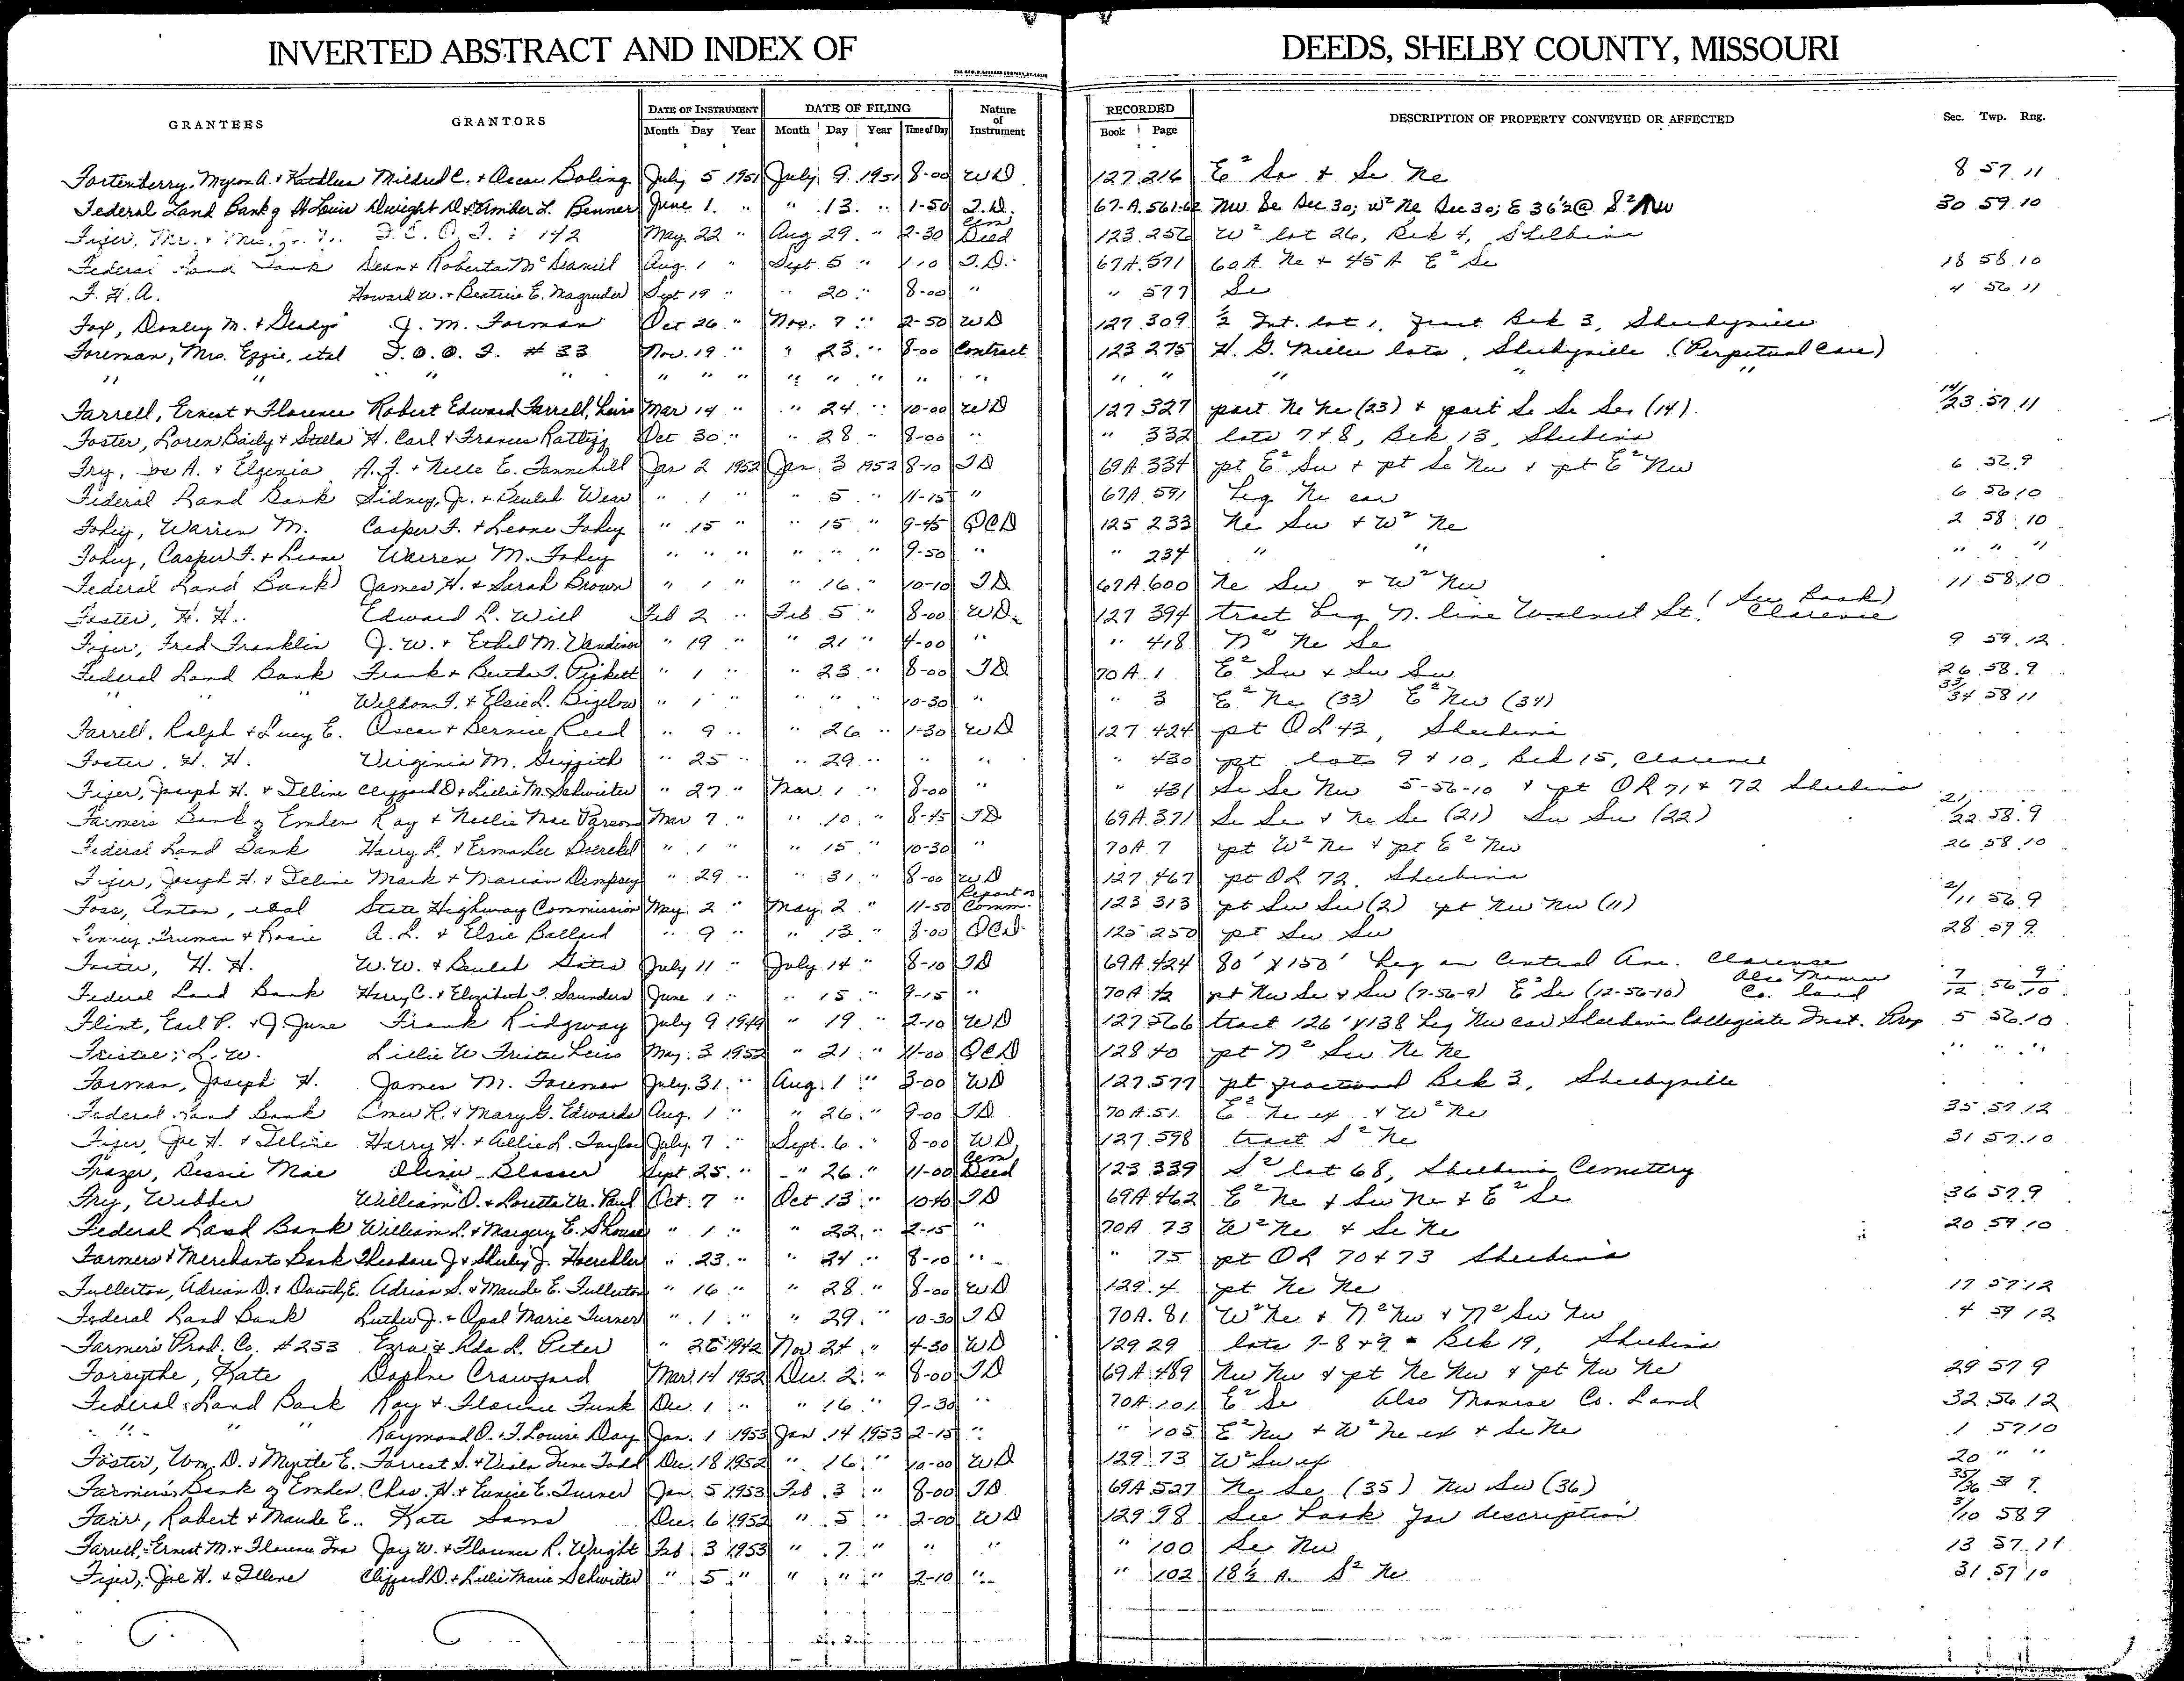 INVERTED ABSTRACT AND INDEX OF DEEDS, SHELBY COUNTY, MISSOURI
GRANTEES GRANTORS DATE OF INSTRUMENT DATE OF FILING Nature of Instrument RECORDED DESCRIPTION OF PROPERTY CONVEYED OR AFFECTED Sec. Twp. Rng.
Month Day Year Month Day Year Time of Day Book Page
Fortenberry, Myron A. + Kathleen Mildred C. + Oscar Boling July 5 1951 July 9 1951 8-00 WD 127 216 E² Se + Se Ne 8 57 11
Federal Land Bank of St Louis Dwight D + Amber L. Benner June 1 " " 13 " 1-50 T.D. 67-A 561-62 Nw Se Sec 30; W² Ne Sec 30; 30 59 10
I.O.O.F. 142 May 22 " Aug 29 " 2-30 Cem Deed 123 256 W² lot 26, Blk 4, Shelbina
Federal Land Bank Dean + Roberta McDaniel Aug. 1 " Sept. 5 " 1-10 T.D. 67A 571 60A Ne + 45A E² Se 18 58 10
F.H.A. Howard W. + Beatrice E. Magruder Sept 19 " " 20 " 8-00 " " 577 Se 4 56 11
Fox, Donley M. + Gladys J. M. Forman Oct 26 " Nov. 7 " 2-50 WD 127 309 ½ Int. lot 1, Fract Blk 3, Shelbyville
Foreman, Mrs. Effie, etal I.O.O.F. #33 Nov. 19 " " 23 " 8-00 Contract 123 275 H. G. Miller lots, Shelbyville (Perpetual Care)
" " " " " " " " " " " " " " " " "
Farrell, Ernest + Florence Robert Edward Farrell, heirs Mar 14 " " 24 " 10-00 WD 127 327 part Ne Ne (23) + part Se Se Se (14) 14/23 57 11
Foster, Loren Baily + Stella H. Carl + Frances Rattliff Oct 30 " " 28 " 8-00 " " 332 lots 7 + 8, Blk 13, Shelbina
Fry, Joe A. + Elgenia A. F. + Nelle E. Tannehill Jan 2 1952 Jan 3 1952 8-10 TD 69A 334 pt E² Sw + pt Se Nw + pt E² Nw 6 56 9
Federal Land Bank Sidney, Jr. + Beulah Wear " 1 " " 5 " 11-15 " 67A 591 beg Ne cor 6 56 10
Fohey, Warren M. Casper F. + Leone Fohey " 15 " " 15 " 9-45 QCD 125 233 Ne Sw + W² Ne 2 58 10
Fohey, Casper F. + Leone Warren M. Fohey " " " " " " 9-50 " " 234 " " " " "
Federal Land Bank James H. + Sarah Brown " 1 " " 16 " 10-10 TD 67A 600 Ne Sw + W² Nw 11 58 10
Foster, H. H. Edward L. Will Feb 2 " Feb 5 " 8-00 WD 127 394 tract beg N. line Walnut St. (See Book) Clarence
Fred Franklin J. W. + Ethel M. " 19 " " 21 " 4-00 " " 418 N² Ne Se 9 59 12
Federal Land Bank Frank + Bertha T. Pickett " 1 " " 23 " 8-00 TD 70A 1 E² Sw + Sw Sw 26 58 9
" " " Weldon F. + Elsie L. Bigelow " 1 " " " " 10-30 " " 3 E² Ne (33) E² Nw (34) 33/34 58 11
Farrell, Ralph + Lucy E. Oscar + Bernice Reed " 9 " " 26 " 1-30 WD 127 424 pt OL 43, Shelbina
Foster, H. H. Virginia M. Griffith " 25 " " 29 " " " " 430 pt lots 9 + 10, Blk 15, Clarence
Joseph H. + Illine Clifford D + Lillie M. Schwieter " 27 " Mar. 1 " 8-00 " " 431 Se Se Nw 5-56-10 + pt OL 71 + 72 Shelbina
Farmers Bank of Emden Ray + Nellie Mae Parsons Mar 7 " " 10 " 8-45 TD 69A 371 Se Se + Ne Se (21) Sw Sw (22) 21/22 58 9
Federal Land Bank Harry L. + Erma Lee " 1 " " 15 " 10-30 " 70A 7 pt W² Ne + pt E² Nw 26 58 10
Joseph H. + Illine Mark + Marian Dempsey " 29 " " 31 " 8-00 WD 127 467 pt OL 72, Shelbina
Foss, Anton, etal State Highway Commission May 2 " May 2 " 11-50 Report of Comm. 123 313 pt Sw Sw (2) pt Nw Nw (11) 2/11 56 9
Truman + Rosie A. L. + Elsie Ballard " 9 " " 13 " 8-00 QCD 125 250 pt Sw Sw 28 59 9
Foster, H. H. W. W. + Beulah Gates July 11 " July 14 " 8-10 TD 69A 424 80' x 150' beg on Central Ave. Clarence
Federal Land Bank Harry C. + Elizabeth T. Saunders June 1 " " 15 " 9-15 " 70A 42 pt Nw Se + Sw (7-56-9) E² Se (12-56-10) Also Monroe Co. land 7/12 56 9/10
Flint, Earl P. + J. June Frank Ridgway July 9 1949 " 19 " 2-10 WD 127 566 tract 126' x 138 beg Nw cor Shelbina Collegiate Inst. Prop 5 56 10
Fristoe, L. W. Lillie W Fristoe heirs May 3 1952 " 21 " 11-00 QCD 128 40 pt N² Sw Ne Ne " " "
Forman, Joseph H. James M. Foreman July 31 " Aug. 1 " 3-00 WD 127 577 pt fractional Blk 3, Shelbyville
Federal Land Bank Omer R. + Mary G. Edwards Aug. 1 " " 26 " 9-00 TD 70A 51 E² Ne ex + W² Ne 35 57 12
Joe H. + Illine Harry H. + Allie L. Taylor July 7 " Sept. 6 " 8-00 WD 127 598 tract S² Ne 31 57 10
Frazer, Bessie Mae Olivia Blasser Sept 25 " " 26 " 11-00 Cem Deed 123 339 S² lot 68, Shelbina Cemetery
Fry, Webber William O. + Loretta Va. Paul Oct. 7 " Oct 13 " 10-40 TD 69A 462 E² Ne + Sw Ne + E² Se 36 57 9
Federal Land Bank William L. + Margery E. Shouse " 1 " " 22 " 2-15 " 70A 73 W² Ne + Se Ne 20 59 10
Farmers + Merchants Bank Theodore J + Shirley J. Hoerchler " 23 " " 24 " 8-10 " " 75 pt OL 70 + 73 Shelbina
Fullerton, Adrian D. + Adrian S. + Maude E. Fullerton " 16 " " 28 " 8-00 WD 129 4 pt Ne Ne 17 57 12
Federal Land Bank Luther J. + Opal Marie Turner " 1 " " 29 " 10-30 TD 70A 81 W² Ne + N² Nw + N² Sw Nw 4 59 12
Farmers Prod. Co. #253 Ezra + Ada L. Peter " 26 1942 Nov 24 " 4-30 WD 129 29 lots 7-8 + 9 - Blk 19, Shelbina
Forsythe, Kate Daphne Crawford Mar. 14 1952 Dec. 2 " 8-00 TD 69A 489 Nw Nw + pt Ne Nw + pt Nw Ne 29 57 9
Federal Land Bank Ray + Florence Funk Dec. 1 " " 16 " 9-30 " 70A 101 E² Se Also Monroe Co. Land 32 56 12
" " " Raymond O. + F. Louise Day Jan. 1 1953 Jan 14 1953 2-15 " " 105 E² Nw + W² Ne ex + Se Ne 1 57 10
Foster, Wm. D. + Myrtle E. Forrest S. + Viola June Todd Dec. 18 1952 " 16 " 10-00 WD 129 73 W² Sw ex 20 " "
Farmers Bank of Emden Chas. H. + Eunice E. Turner Jan. 5 1953 Feb 3 " 8-00 TD 69A 527 Ne Se (35) Nw Sw (36) 35/36 9
Fair, Robert + Maude E. Kate Sams Dec. 6 1952 " 5 " 2-00 WD 129 98 See book for description 3/10 58 9
Farrell, Ernest M. + Florence Jay W. + Florence R. Wright Feb. 3 1953 " 7 " " " " 100 Se Nw 13 57 11
Joe H. + Illene Clifford D. + Lillie Marie Schwieter " 5 " " " " 2-10 " " 102 18½ A. S² Ne 31 57 10